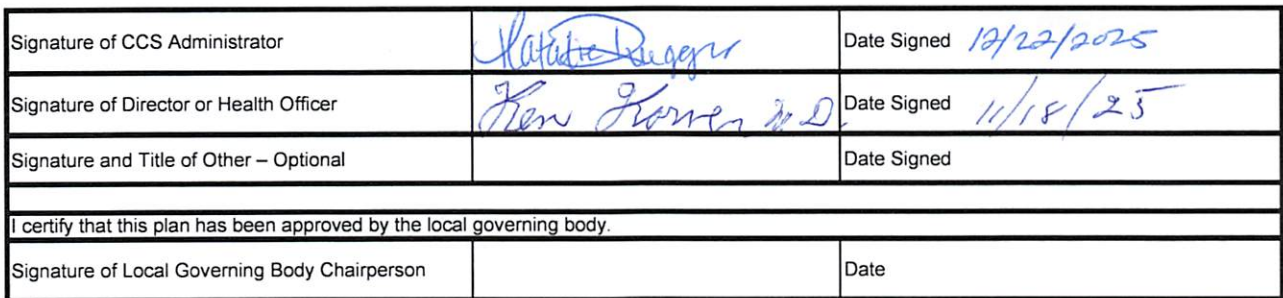 Signature of CCS Administrator Natalie Date Signed 12/22/2025
Signature of Director or Health Officer Ken M.D. Date Signed 11/18/25
Signature and Title of Other – Optional Date Signed
I certify that this plan has been approved by the local governing body.
Signature of Local Governing Body Chairperson Date